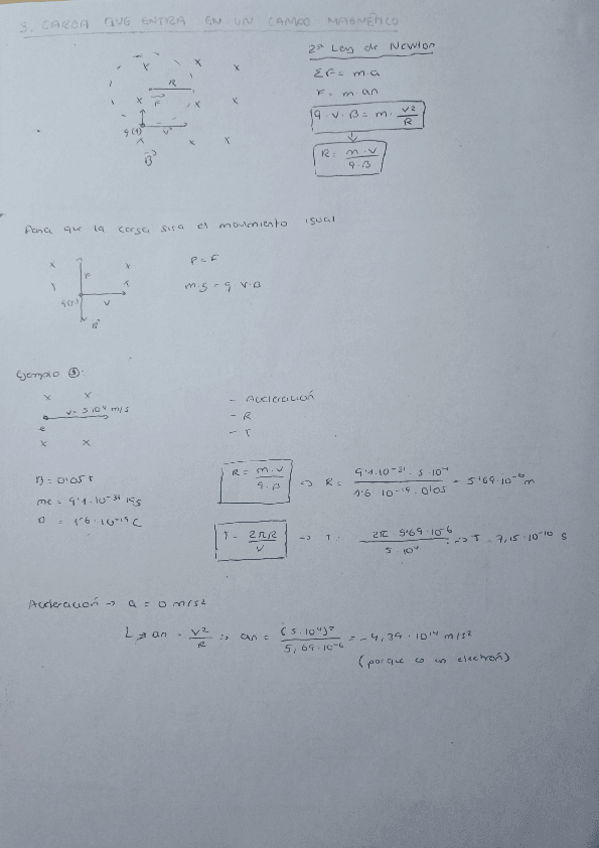 3. CARGA QUE ENTRA EN UN CAMPO MAGNÉTICO
2ª Ley de Newton
ΣF = m·a
F = m·an
q·V·B = m·V²/R
R = m·V/q·B
x x x
R
x F x x
q(+) V
B x x
Para que la carga siga el movimiento igual
x x
F
P = F
m·g = q·V·B
q(+) V
Ejemplo ③:
x x
V = 5·10⁴ m/s
e
x x
- Aceleración
- R
- T
B = 0'05 T
me = 9'1·10⁻³¹ kg
= 1'6·10⁻¹⁹ C
R = m·V/q·B => R = 9'1·10⁻³¹·5·10⁴/1'6·10⁻¹⁹·0'05 = 5'69·10⁻⁶ m
T = 2πR/V -> T = 2π 5'69·10⁻⁶/5·10⁴ => T = 7,15·10⁻¹⁰ s
Aceleración -> a = 0 m/s²
L> an = V²/R => an = (5·10⁴)²/5,69·10⁻⁶ = -4,39·10¹⁴ m/s²
(porque es un electrón)